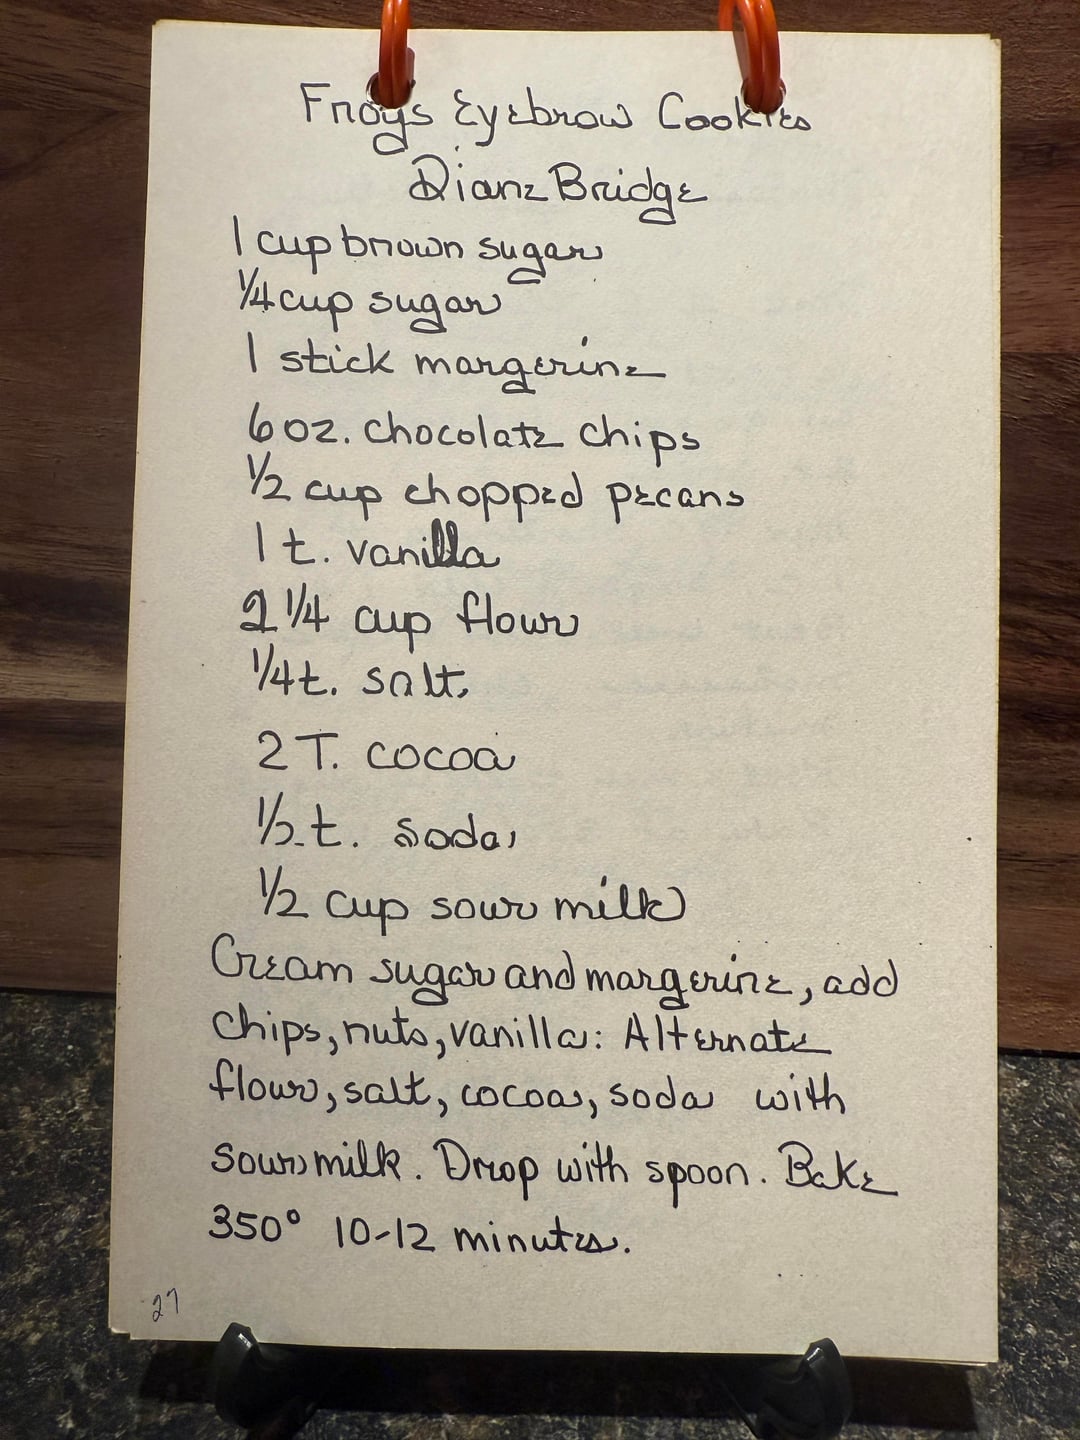 Frogs Eyebrow Cookies
Diane Bridge
1 cup brown sugar
1/4 cup sugar
1 stick margerine
6 oz. chocolate chips
1/2 cup chopped pecans
1 t. vanilla
2 1/4 cup flour
1/4 t. salt
2 T. cocoa
1/2 t. soda
1/2 cup sour milk
Cream sugar and margerine, add
chips, nuts, vanilla: Alternate
flour, salt, cocoa, soda with
sour milk. Drop with spoon. Bake
350° 10-12 minutes.
27